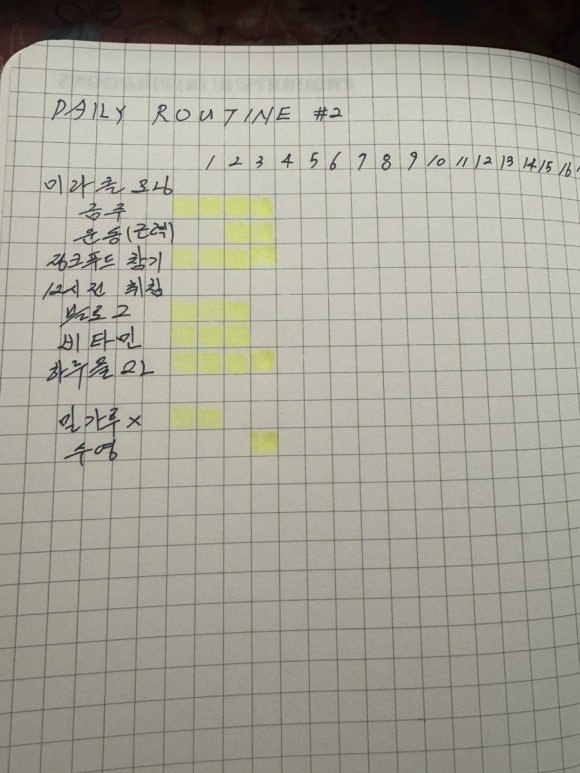 DAILY ROUTINE #2
1 2 3 4 5 6 7 8 9 10 11 12 13 14 15 16
미라클 모닝
금주
운동(근력)
정크푸드 참기
12시 전 취침
블로그
비타민
하루 물 2L
밀가루 X
수영